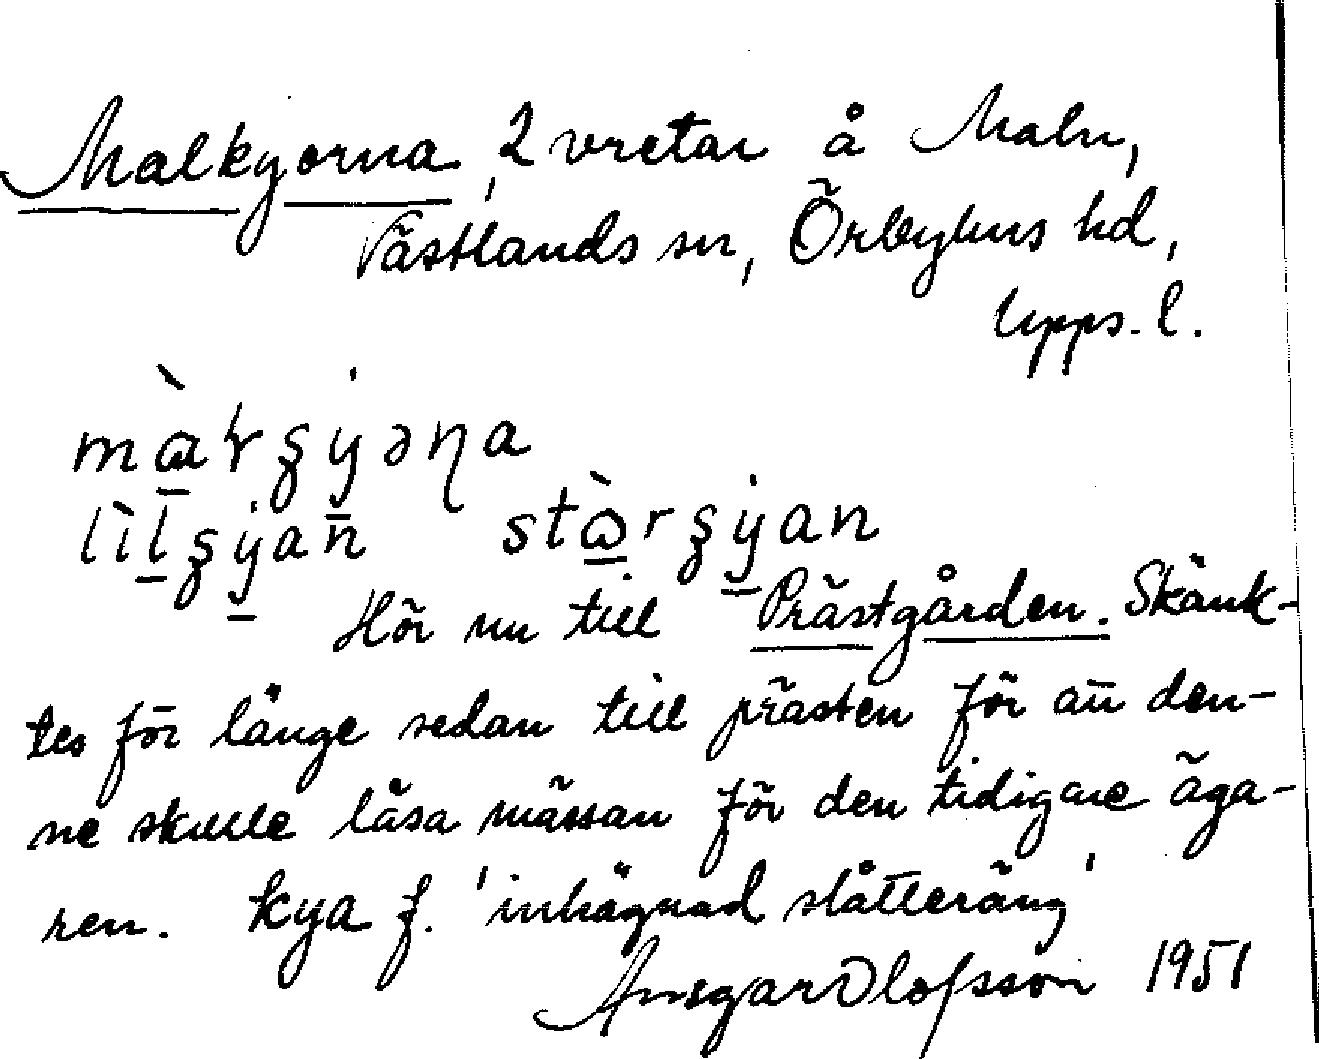 Malkyorna, 2 vretar å Malm,
Västlands sn, Örbyhus hd,
Upps. l.
Hör nu till Prästgården. Skänk-
tes för länge sedan till prästen för att den-
ne skulle läsa mässan för den tidigare äga-
ren. kya f. 'inhägnad slåtteräng'
Ansgar Olofsson 1951